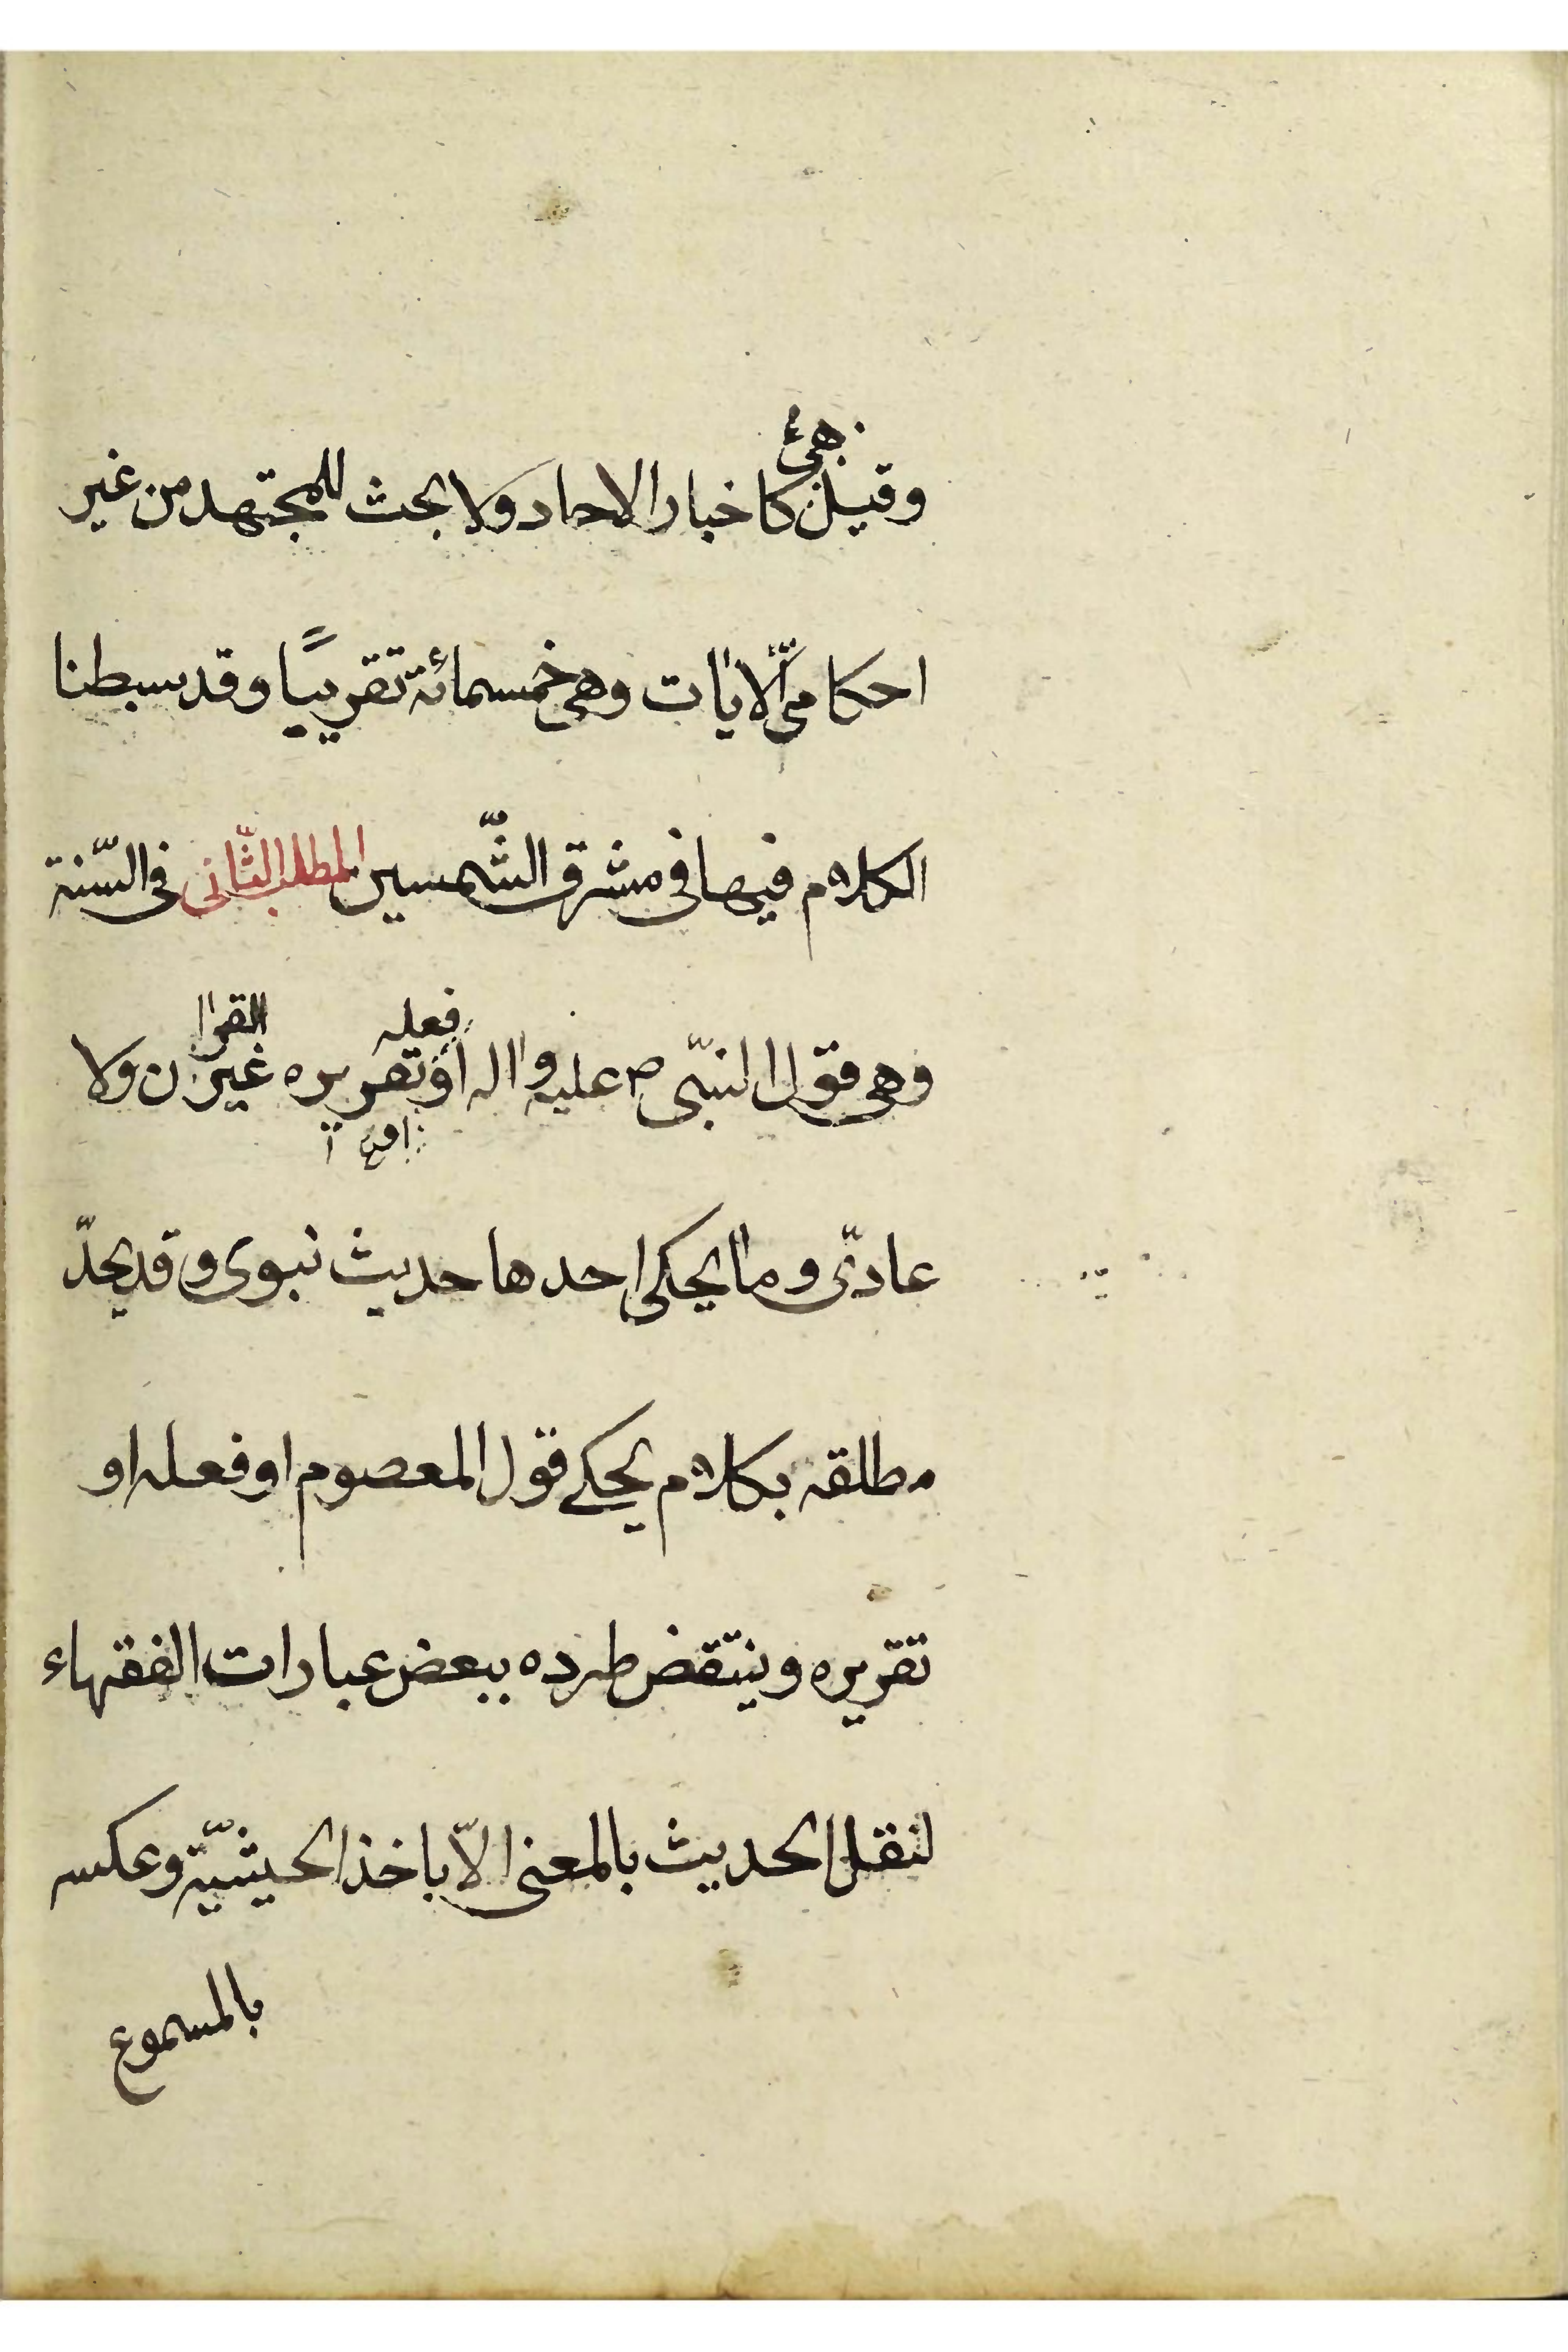 وقيل هي كاخبار الاحاد ولا بحث للمجتهد من غير
احكامى الايات وهى خمسمائة تقريبًا وقد بسطنا
الكلام فيها فى مشرق الشّمسين المطلب الثّانى فى السّنة
وهى قول النبّى ص عليه واله او فعله او تقريره غير القران ولا
عادّى وما يحكى احدها حديث نبوى وقد يحدّ
مطلقه بكلام يحكے قول المعصوم او فعله او
تقريره وينتقض طرده ببعض عبارات الفقهاء
لنقل الحديث بالمعنى الاّ باخذ الحيثيّة وعكسه
بالمسموع